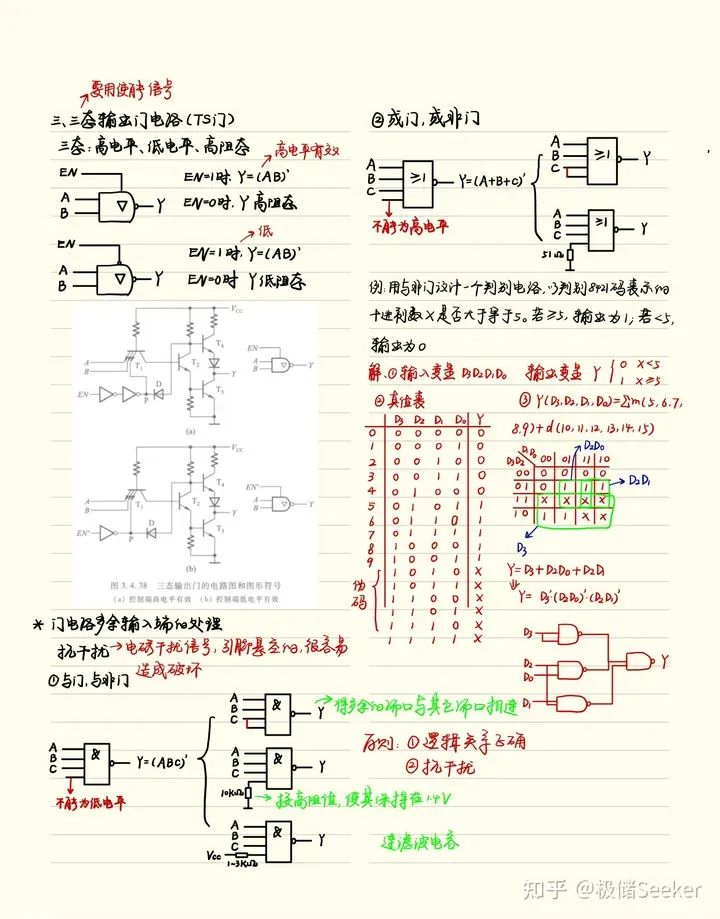 要用使能信号
三、三态输出门电路(TS门)
三态:高电平、低电平、高阻态
高电平有效
EN
A
B
Y
EN=1时,Y=(AB)'
EN=0时,Y高阻态
低
EN
A
B
Y
EN=1时,Y=(AB)'
EN=0时Y低阻态
Vcc
A
B
T₁
T₂
T₄
T₅
Y
EN
P
D
EN
A
B
Y
(a)
Vcc
A
B
T₁
T₂
T₄
T₅
Y
EN'
P
D
EN'
A
B
Y
(b)
图 3.4.38 三态输出门的电路图和图形符号
(a)控制端高电平有效 (b)控制端低电平有效
* 门电路多余输入端的处理
抗干扰→电磁干扰信号,引脚悬空的,很容易
造成破坏
①与门,与非门
A
B
C
&
Y=(ABC)'
不能为低电平
A
B
C
&
Y
将多余的端口与其它端口相连
A
B
C
&
Y
10KΩ
接高阻值,使其保持在1.4V
A
B
&
Y
Vcc
1~3KΩ
②或门,或非门
A
B
C
≥1
Y=(A+B+C)'
不能为高电平
A
B
C
≥1
Y
A
B
C
≥1
Y
51Ω
例:用与非门设计一个判别电路,以判别8421码表示的
十进制数X是否大于等于5。若≥5,输出为1;若<5,
输出为0
解:①输入变量 D₃D₂D₁D₀ 输出变量 Y { 0 X<5
1 X≥5
②真值表
D₃ D₂ D₁ D₀ Y
0 0 0 0 0 0
1 0 0 0 1 0
2 0 0 1 0 0
3 0 0 1 1 0
4 0 1 0 0 0
5 0 1 0 1 1
6 0 1 1 0 1
7 0 1 1 1 1
8 1 0 0 0 1
9 1 0 0 1 1
1 0 1 0 X
1 0 1 1 X
1 1 0 0 X
1 1 0 1 X
1 1 1 0 X
1 1 1 1 X
伪码
③ Y(D₃,D₂,D₁,D₀)=Σm(5,6,7,
8,9)+d(10,11,12,13,14,15)
D₂D₀
D₁D₀
D₃D₂
00 01 11 10
00 0 0 0 0
01 0 1 1 1
11 X X X X
10 1 1 X X
D₂D₁
D₃
Y=D₃+D₂D₀+D₂D₁
Y= D₃'(D₂D₀)'·(D₂D₁)'
D₃
D₂
D₀
D₁
Y
原则:①逻辑关系正确
②抗干扰
连滤波电容
知乎 @极储Seeker